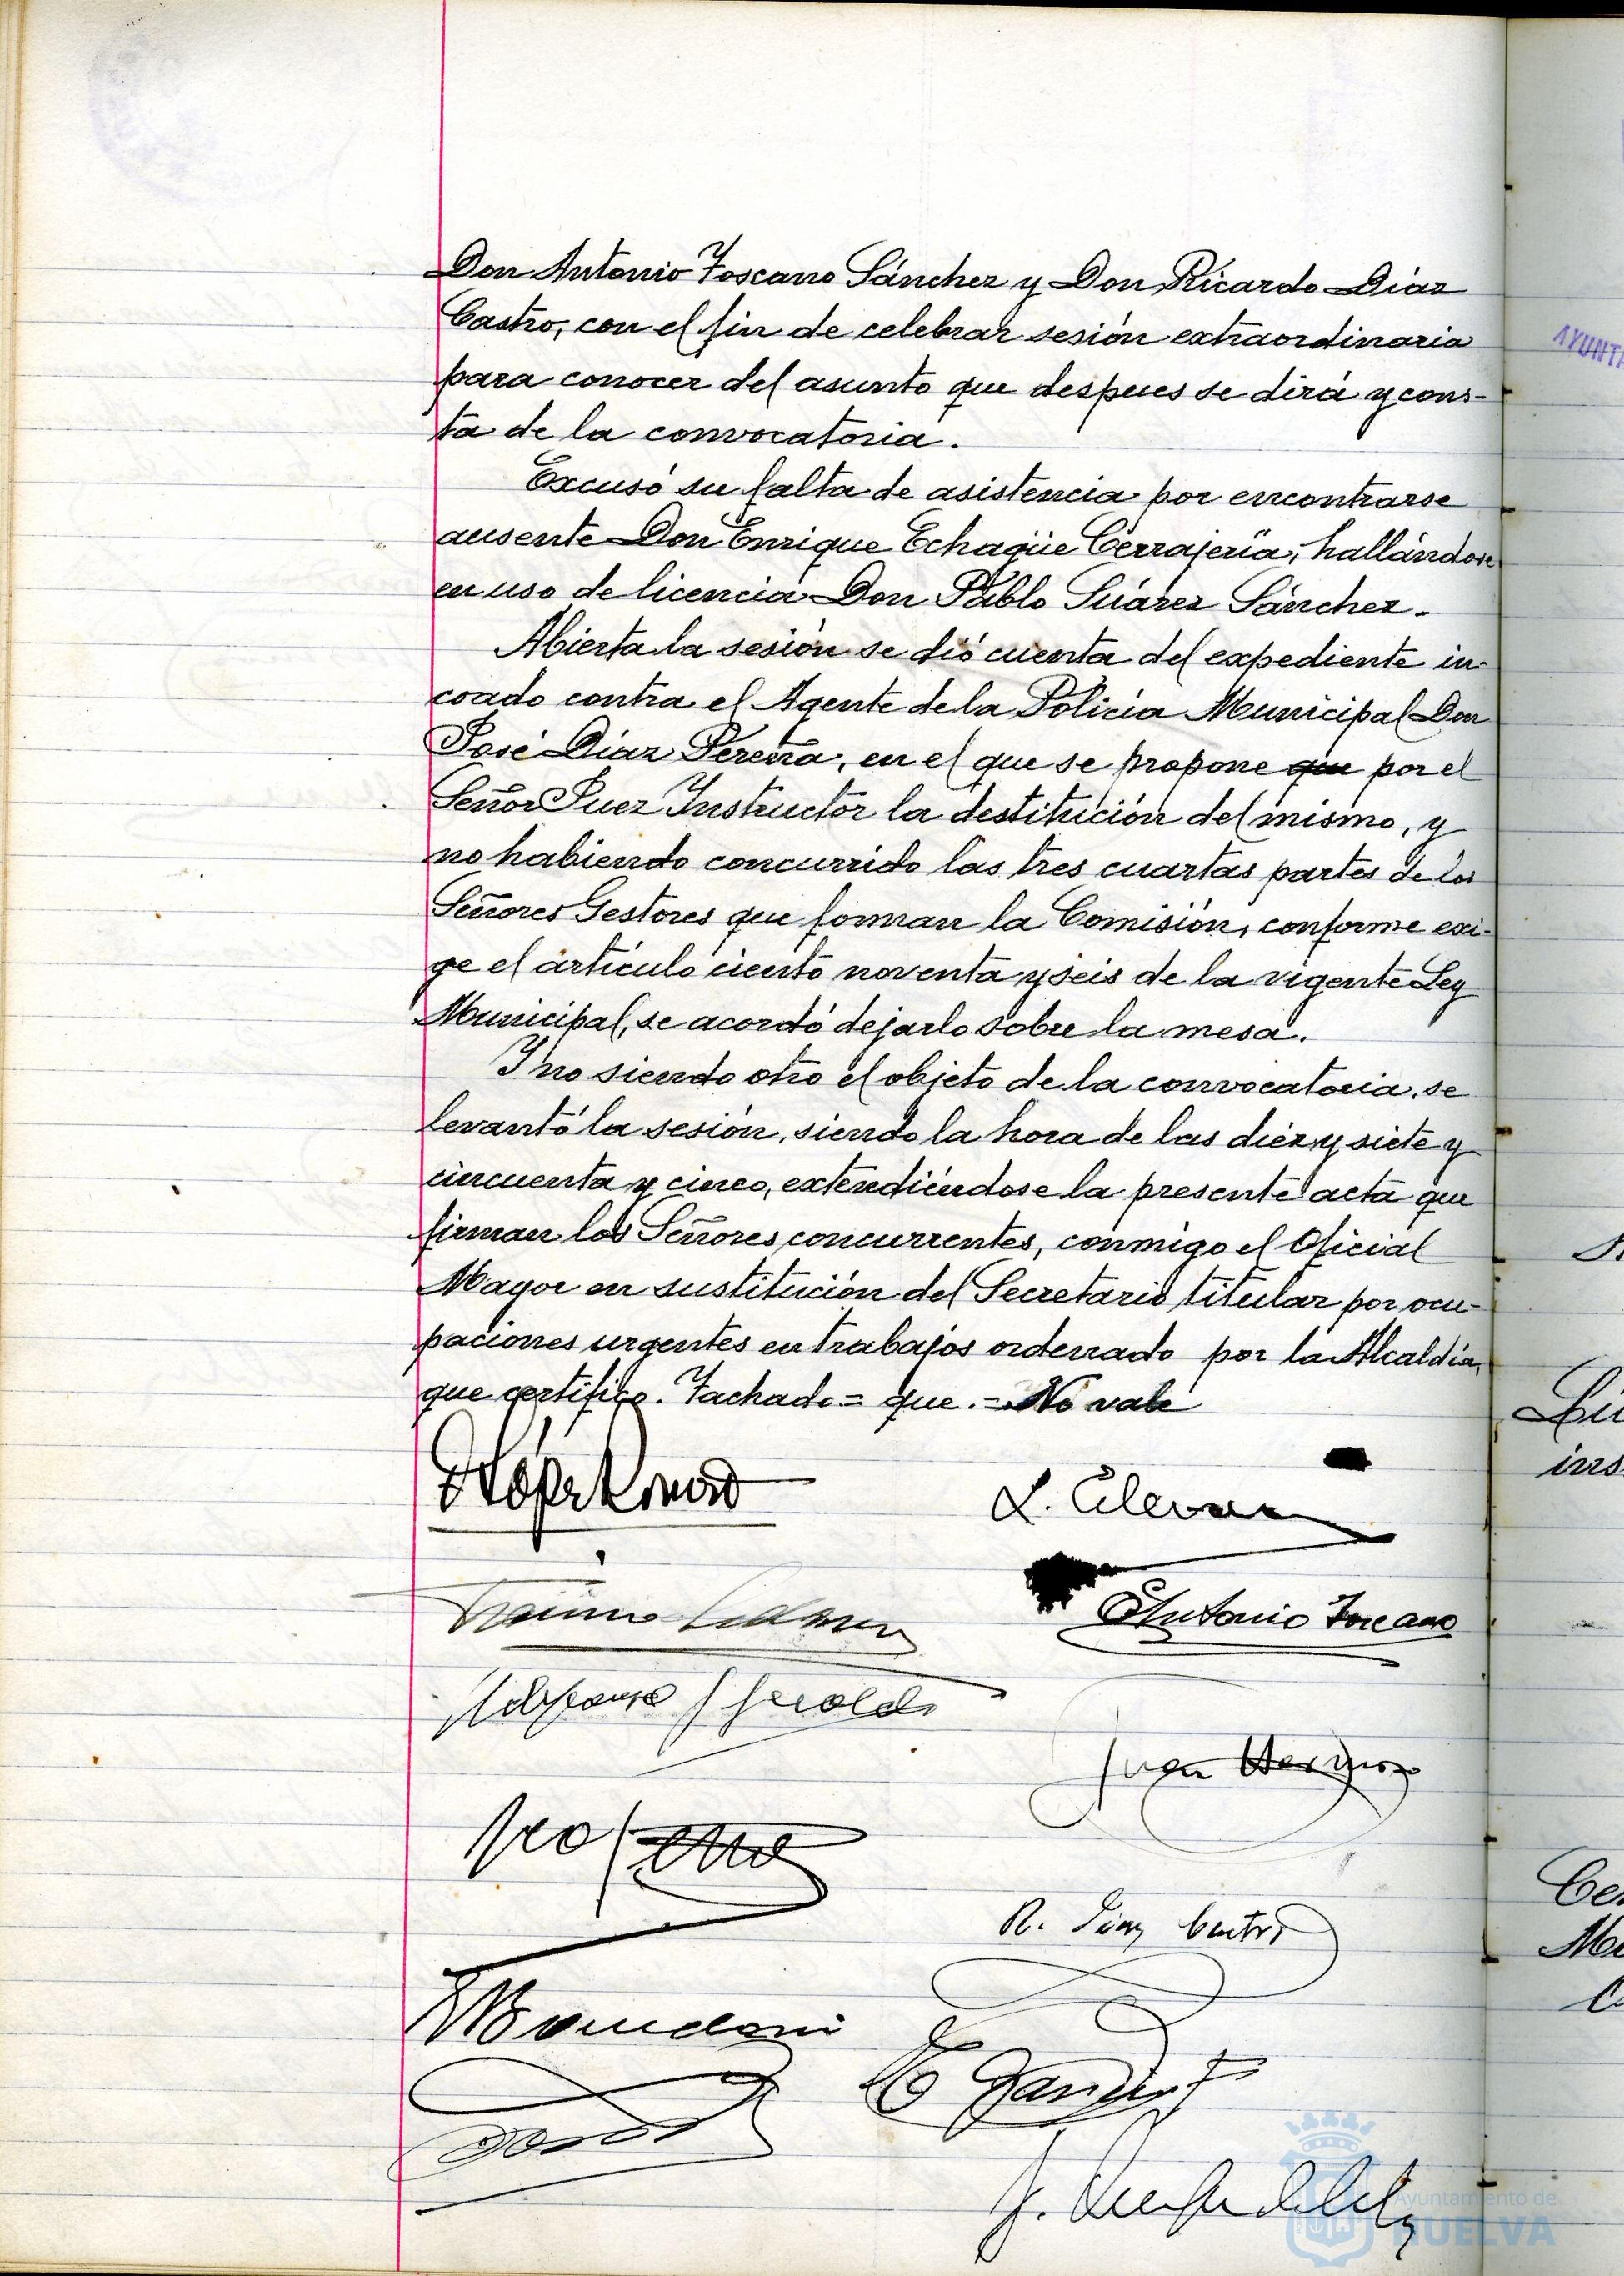 Don Antonio Toscano Sánchez y Don Ricardo Díaz
Castro, con el fin de celebrar sesión extraordinaria
para conocer del asunto que despues se dirá y cons-
ta de la convocatoria.
Excusó su falta de asistencia por encontrarse
ausente Don Enrique Echagüe Cerrajería, hallándose
en uso de licencia Don Pablo Suárez Sánchez.
Abierta la sesión se dió cuenta del expediente in-
coado contra el Agente de la Policía Municipal Don
José Díaz Pereña, en el que se propone que por el
Señor Juez Instructor la destitución del mismo, y
no habiendo concurrido las tres cuartas partes de los
Señores Gestores que forman la Comisión, conforme exi-
ge el artículo ciento noventa y seis de la vigente Ley
Municipal, se acordó dejarlo sobre la mesa.
Y no siendo otro el objeto de la convocatoria, se
levantó la sesión, siendo la hora de las diez y siete y
cincuenta y cinco, extendiéndose la presente acta que
firman los Señores concurrentes, conmigo el Oficial
Mayor en sustitución del Secretario titular por ocu-
paciones urgentes en trabajos ordenado por la Alcaldía,
que certifico. Tachado = que. = No vale
Antonio Toscano
Juan
R. Díaz Castro
AYUNTA
ins
Ayuntamiento de
HUELVA